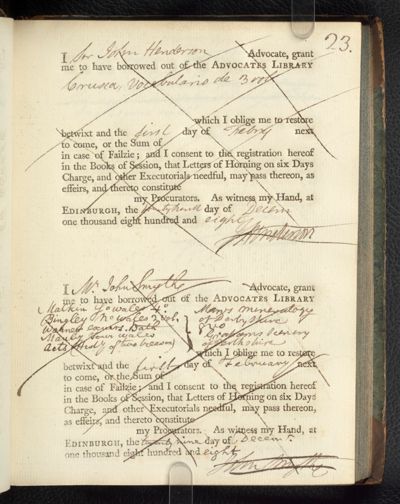 23.
I Sr John Henderson Advocate, grant
me to have borrowed out of the ADVOCATES LIBRARY
Crusca, Vocabulario de 3 vols
which I oblige me to restore
betwixt and the first day of Febry next
to come, or the Sum of
in case of Failzie; and I consent to the registration hereof
in the Books of Session, that Letters of Horning on six Days
Charge, and other Executorials needful, may pass thereon, as
effeirs, and thereto constitute
my Procurators. As witness my Hand, at
EDINBURGH, the day of Decem
one thousand eight hundred and eight
Henderson
I Mr John Smythe Advocate, grant
me to have borrowed out of the ADVOCATES LIBRARY
Malkin S. Wales 4o
Bingley No Wales 2 vol.
Warner Tour Wales
Acts
Maws mineralogy
of Derbyshire
Scenery
of Perthshire
which I oblige me to restore
betwixt and the first day of February next
to come, or the Sum of
in case of Failzie; and I consent to the registration hereof
in the Books of Session, that Letters of Horning on six Days
Charge, and other Executorials needful, may pass thereon,
as effeirs, and thereto constitute
my Procurators. As witness my Hand, at
EDINBURGH, the twenty nine day of Decemr.
one thousand eight hundred and eight
John Smythe